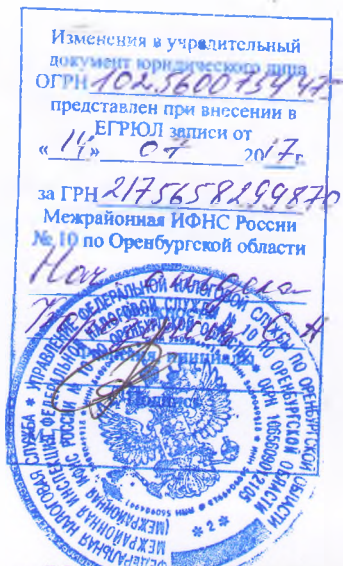 Изменения в учредительный
документ юридического лица
ОГРН 1025600754475
представлен при внесении в
ЕГРЮЛ записи от
«14» 07 2017г.
за ГРН 2175658299870
Межрайонная ИФНС России
№ 10 по Оренбургской области
Нач
Фамилия, инициалы
Подпись
М
УПРАВЛЕНИЕ ФЕДЕРАЛЬНОЙ НАЛОГОВОЙ СЛУЖБЫ ПО ОРЕНБУРГСКОЙ ОБЛАСТИ
ФЕДЕРАЛЬНАЯ НАЛОГОВАЯ СЛУЖБА
МЕЖРАЙОННАЯ ИНСПЕКЦИЯ ФЕДЕРАЛЬНОЙ НАЛОГОВОЙ СЛУЖБЫ № 10 ПО ОРЕНБУРГСКОЙ ОБЛАСТИ
(МЕЖРАЙОННАЯ ИФНС РОССИИ № 10 ПО ОРЕНБУРГСКОЙ ОБЛАСТИ)
* 2 *